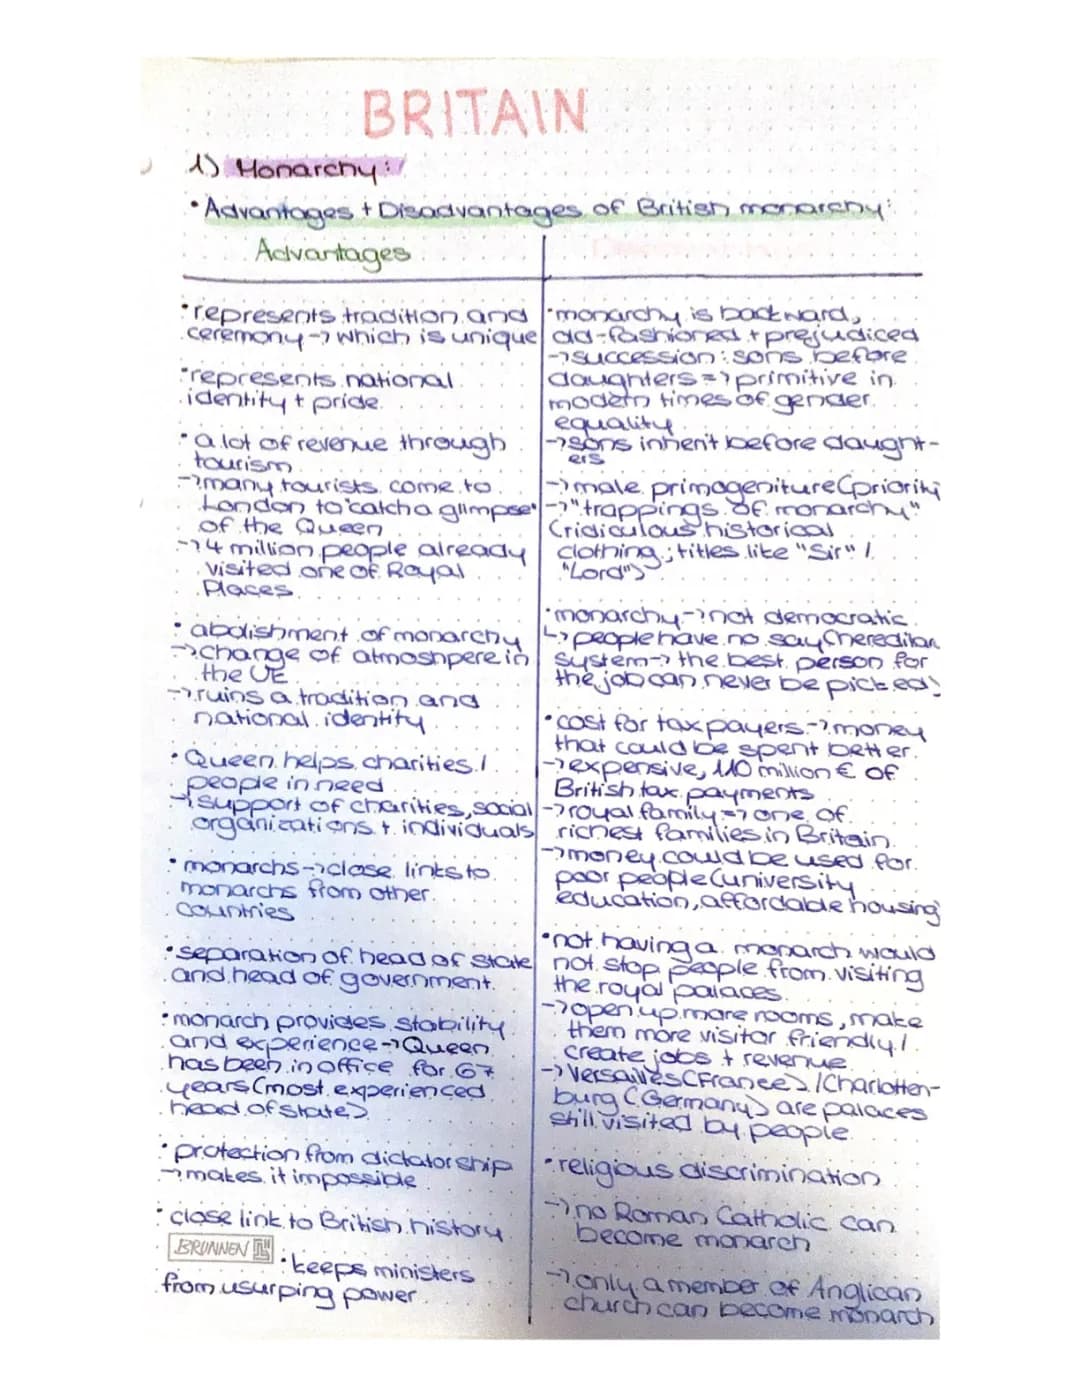 BRITAIN
1) Monarchy:
• Advantages + Disadvantages of British monarchy:
Advantages
• represents tradition and
ceremony → which is unique
• represents national
identity + pride
• a lot of revenue through
tourism
→ many tourists come to
London to "catch a glimpse"
of the Queen
→ 4 million people already
visited one of Royal
Places
• abolishment of monarchy
→ change of atmoshpere in
the UE
→ ruins a tradition and
national identity
• Queen helps charities /
people in need
→ support of charities, social
organizations + individuals
• monarchs → close links to
monarchs from other
countries
• separation of head of state
and head of government
• monarch provides stability
and experience → Queen
has been in office for 67
years (most experienced
head of state)
• protection from dictatorship
→ makes it impossible
• close link to British history
BRUNNEN
• keeps ministers
from usurping power
• monarchy is backward,
old-fashioned + prejudiced
→ succession: sons before
daughters => primitive in
modern times of gender
equality
→ sons inherit before daught-
ers
→ male primogeniture (priority
→ "trappings of monarchy"
(ridiculous historical
clothing; titles like "Sir" /
"Lord")
• monarchy → not democratic
↳ people have no say (hereditar
system → the best person for
the job can never be picked)
• cost for tax payers → money
that could be spent better
→ expensive, 110 million € of
British tax payments
→ royal family => one of
richest families in Britain
→ money could be used for
poor people (university
education, affordable housing
• not having a monarch would
not stop people from visiting
the royal palaces
→ open up more rooms, make
them more visitor friendly /
create jobs + revenue
→ Versailles (France) / Charlotten-
burg (Germany) are palaces
still visited by people
• religious discrimination
→ no Roman Catholic can
become monarch
→ only a member of Anglican
church can become monarch